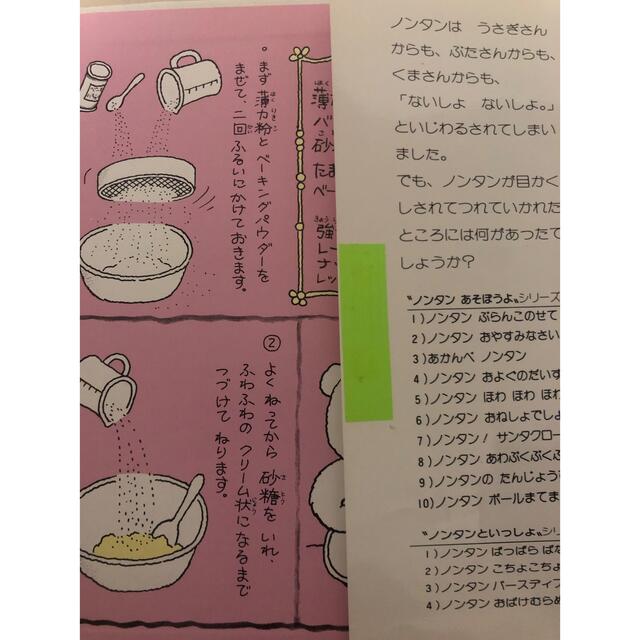 。まず 薄力粉と ベーキングパウダーを
まぜて、二回 ふるいにかけておきます。
薄
バ
砂
たま
ベー
強
レー
ナッ
レッ
②
よく ねってから 砂糖を いれ、
ふわふわの クリーム状になるまで
つづけて ねります。
ノンタンは うさぎさん
からも、ぶたさんからも、
くまさんからも、
「ないしょ ないしょ。」
といじわるされてしまい
ました。
でも、ノンタンが目かく
しされてつれていかれた
ところには何があったで
しょうか?
“ノンタン あそぼうよ„シリーズ
1)ノンタン ぶらんこのせて
2)ノンタン おやすみなさい
3)あかんべ ノンタン
4)ノンタン およぐのだいす
5)ノンタン ほわ ほわ ほわ
6)ノンタン おねしょでしょ
7)ノンタン! サンタクロー
8)ノンタン あわぷくぷくぷ
9)ノンタンの たんじょうび
10)ノンタン ボールまてま
“ノンタンといっしょ„シリ
1)ノンタン ぱっぱら ぱな
2)ノンタン こちょこちょ
3)ノンタン バースディブ
4)ノンタン おばけむらめ